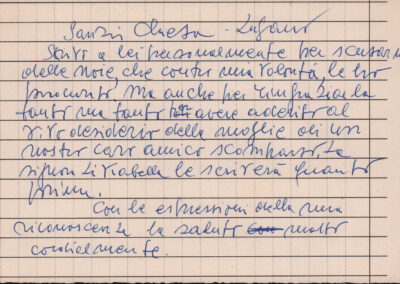 Sandri Chiesa - Lugano
Scrivo a lei personalmente per scusarmi
delle noie, che contro mia volontà, le ho
procurato, ma anche per ringraziarla
tanto ma tanto avere aderito al
vivo desiderio della moglie di un
nostro caro amico scomparso. La
signora Liviabella le scriverà quanto
prima.
Con le espressioni della mia
riconoscenza la saluto molto
cordialmente.